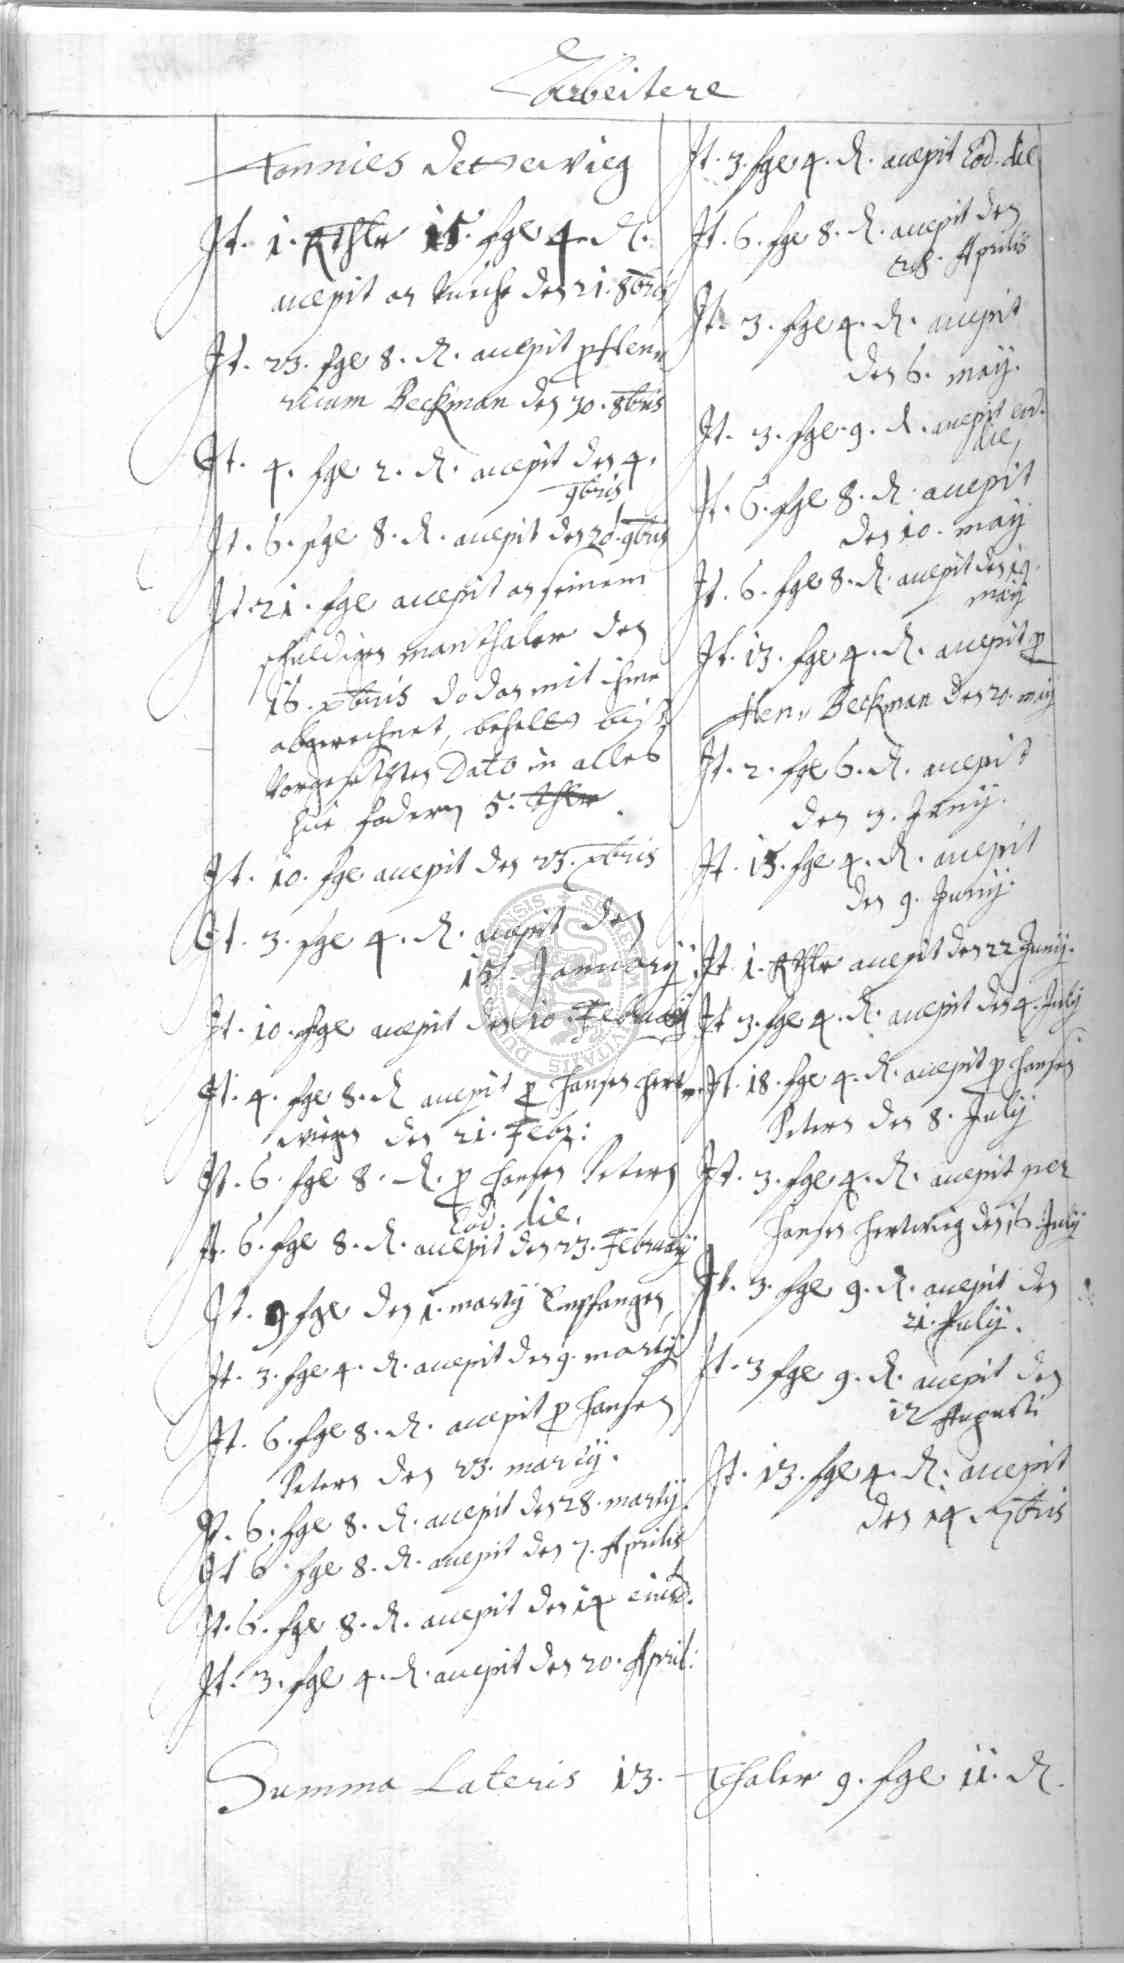 Arbeitere
Tonnies Detterwieg
It. 1. Rthlr 15. sgl 4. d.
accepit an Kueche den 21. 8bris
It. 23. sgl 8. d. accepit p Hen
ricum Beckman den 30. 8bris
It. 4. sgl 2. d. accepit den 4.
9bris
It. 6. sgl 8. d. accepit den 20. 9bris
It. 21. sgl accepit an seinem
schuldigen thaler den
16. xbris do dan mit ihme
abgerechnet, behelt
Vorgesetzten Dato in alles
zue fodern 5. thlr
It. 10. sgl accepit den 23. xbris
It. 3. sgl 4. d. accepit den
15. January
It. 10. sgl accepit den 10. February
It. 4. sgl 8. d accepit p Hansen Hert
wiegen den 21. Febr:
It. 6. sgl 8. d. p Hansen Peters
Eod. die.
It. 6. sgl 8. d. accepit den 23. February
It. 9. sgl den 1. marty Empfangen
It. 3. sgl 4. d. accepit den 9. marty
It. 6. sgl 8. d. accepit p Hansen
Peters den 23. marty.
It. 6. sgl 8. d. accepit den 28. marty.
It 6. sgl 8. d. accepit den 7. Aprilis
It. 6. sgl 8. d. accepit den 14 eiusd.
It. 3. sgl 4. d. accepit den 20. April:
It. 3. sgl 4. d. accepit Eod. die
It. 6. sgl 8. d. accepit den
28. Aprilis
It. 3. sgl 4. d. accepit
den 6. may.
It. 3. sgl. 9. d. accepit eod.
die
It. 6. sgl 8. d. accepit
den 10. may
It. 6. sgl 8. d. accepit den 19.
may
It. 13. sgl 4. d. accepit p
Hen. Beckman den 20. may
It. 2. sgl 6. d. accepit
den 3. Juny.
It. 15. sgl 4. d. accepit
den 9. Juny.
It. 1. Rthlr accepit den 22 Juny.
It 3. sgl 4. d. accepit den 4. July
It. 18. sgl 4. d. accepit p Hansen
Peters den 8. July
It. 3. sgl 4. d. accepit per
Hansen Hertwieg den 16. July
It. 3. sgl 9. d. accepit den
21. July.
It. 3 sgl 9. d. accepit den
12 Augusti
It. 13. sgl 4. d. accepit
den 14. 7bris
Summa Lateris 13. Thaler 9. sgl 11. d.